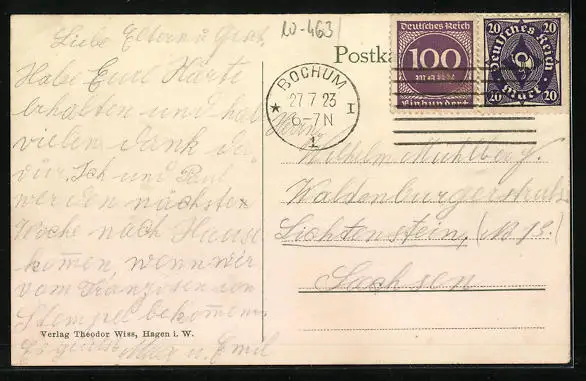 10-463
Liebe Eltern u. Gesch.
Habe Eure Karte
erhalten und hab
vielen dank da
für. Ich und Paul
werden nächsten
Woche nach Hause
kommen, wenn wir
vom Franzosen den
Stempel bekommen.
Es grüsst Max u. Emil
Verlag Theodor Wiss, Hagen i. W.
Postka
Deutsches Reich
100
mark
Einhundert
20 20
Deutsches Reich
mark
20 20
BOCHUM
27 7 23
6-7N
* I
1
Herrn
Wilhelm Mühlberg.
Waldenburgerstraße
Lichtenstein,
Sachsen